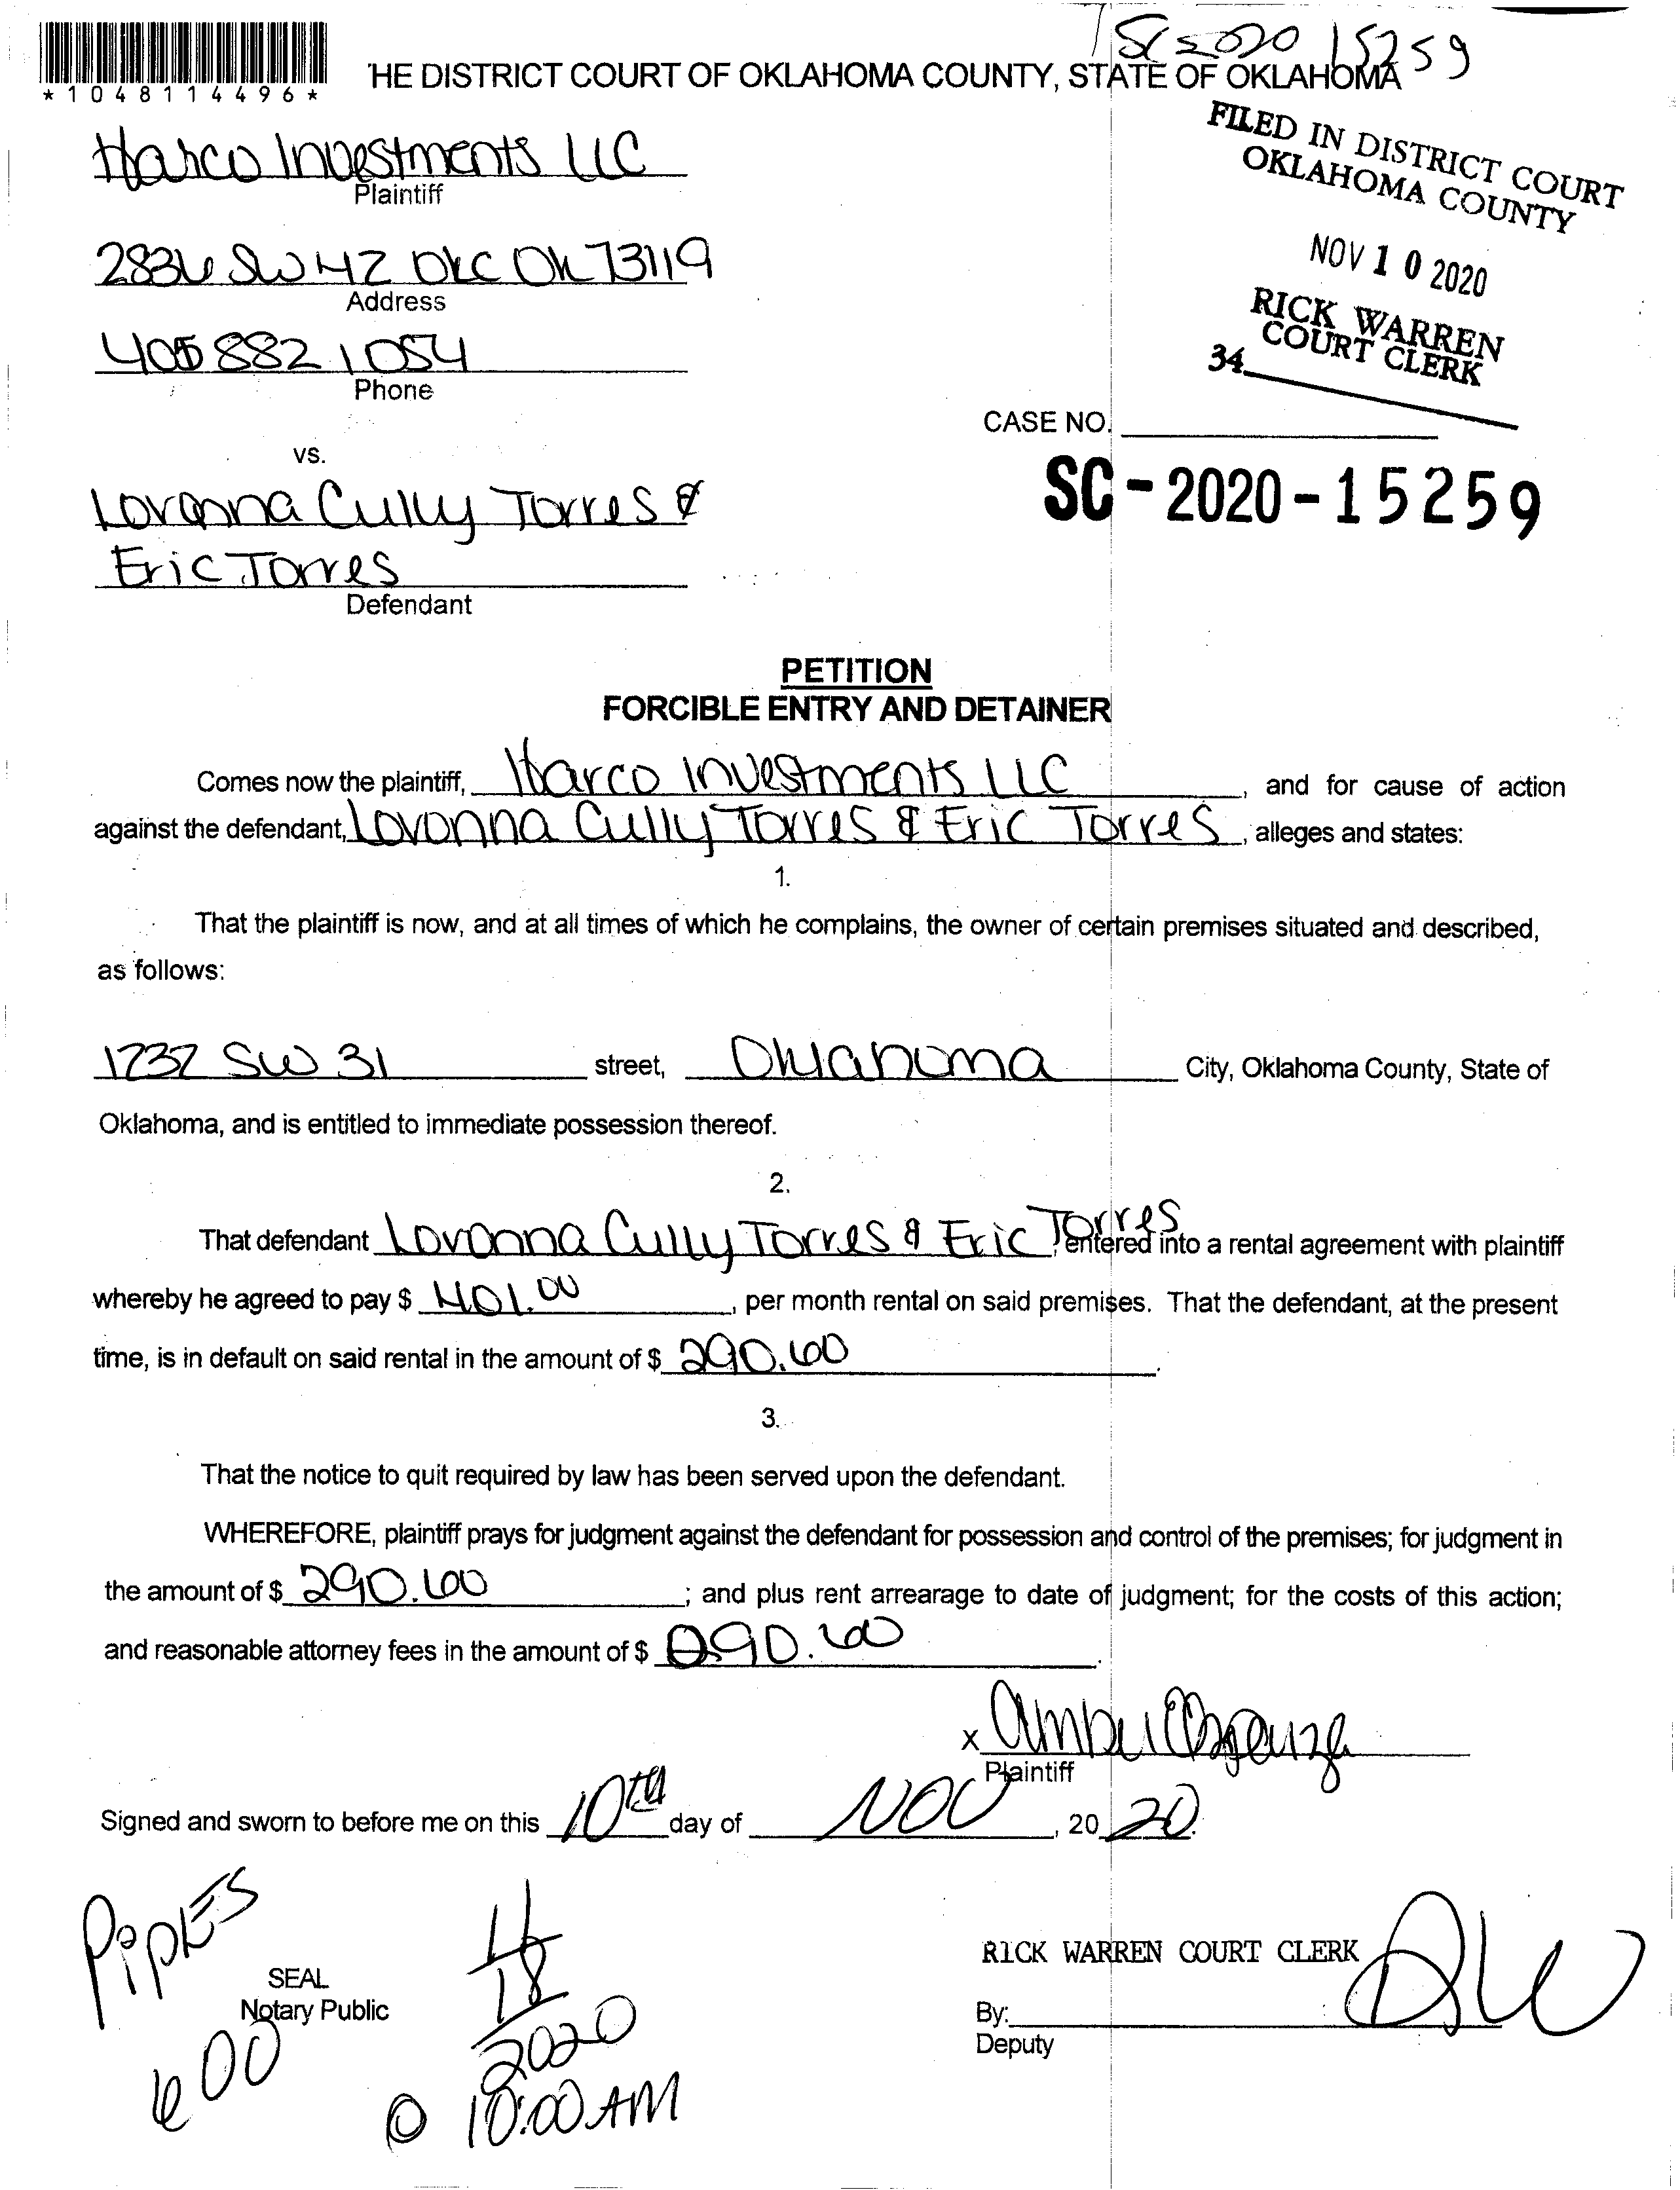 SC 2020 15259
*1048114496*
HE DISTRICT COURT OF OKLAHOMA COUNTY, STATE OF OKLAHOMA
FILED IN DISTRICT COURT
OKLAHOMA COUNTY
Harco Investments LLC
Plaintiff
2836 SW 42 OKC OK 73119
Address
NOV 10 2020
RICK WARREN
COURT CLERK
34
405 882 1054
Phone
CASE NO.
vs.
SC-2020-15259
Lovonna Cully Torres &
Eric Torres
Defendant
PETITION
FORCIBLE ENTRY AND DETAINER
Comes now the plaintiff, Harco Investments LLC, and for cause of action
against the defendant, Lovonna Cully Torres & Eric Torres, alleges and states:
1.
That the plaintiff is now, and at all times of which he complains, the owner of certain premises situated and described,
as follows:
1732 SW 31 street, Oklahoma City, Oklahoma County, State of
Oklahoma, and is entitled to immediate possession thereof.
2.
That defendant Lovonna Cully Torres & Eric Torres, entered into a rental agreement with plaintiff
whereby he agreed to pay $ 401.00, per month rental on said premises. That the defendant, at the present
time, is in default on said rental in the amount of $ 290.60.
3.
That the notice to quit required by law has been served upon the defendant.
WHEREFORE, plaintiff prays for judgment against the defendant for possession and control of the premises; for judgment in
the amount of $ 290.60; and plus rent arrearage to date of judgment; for the costs of this action;
and reasonable attorney fees in the amount of $ 290.60.
x
Plaintiff
Signed and sworn to before me on this 10th day of NOV, 20 20.
PIPKES
SEAL
Notary Public
600
11/18/2020
@ 10:00 AM
RICK WARREN COURT CLERK
By:
Deputy